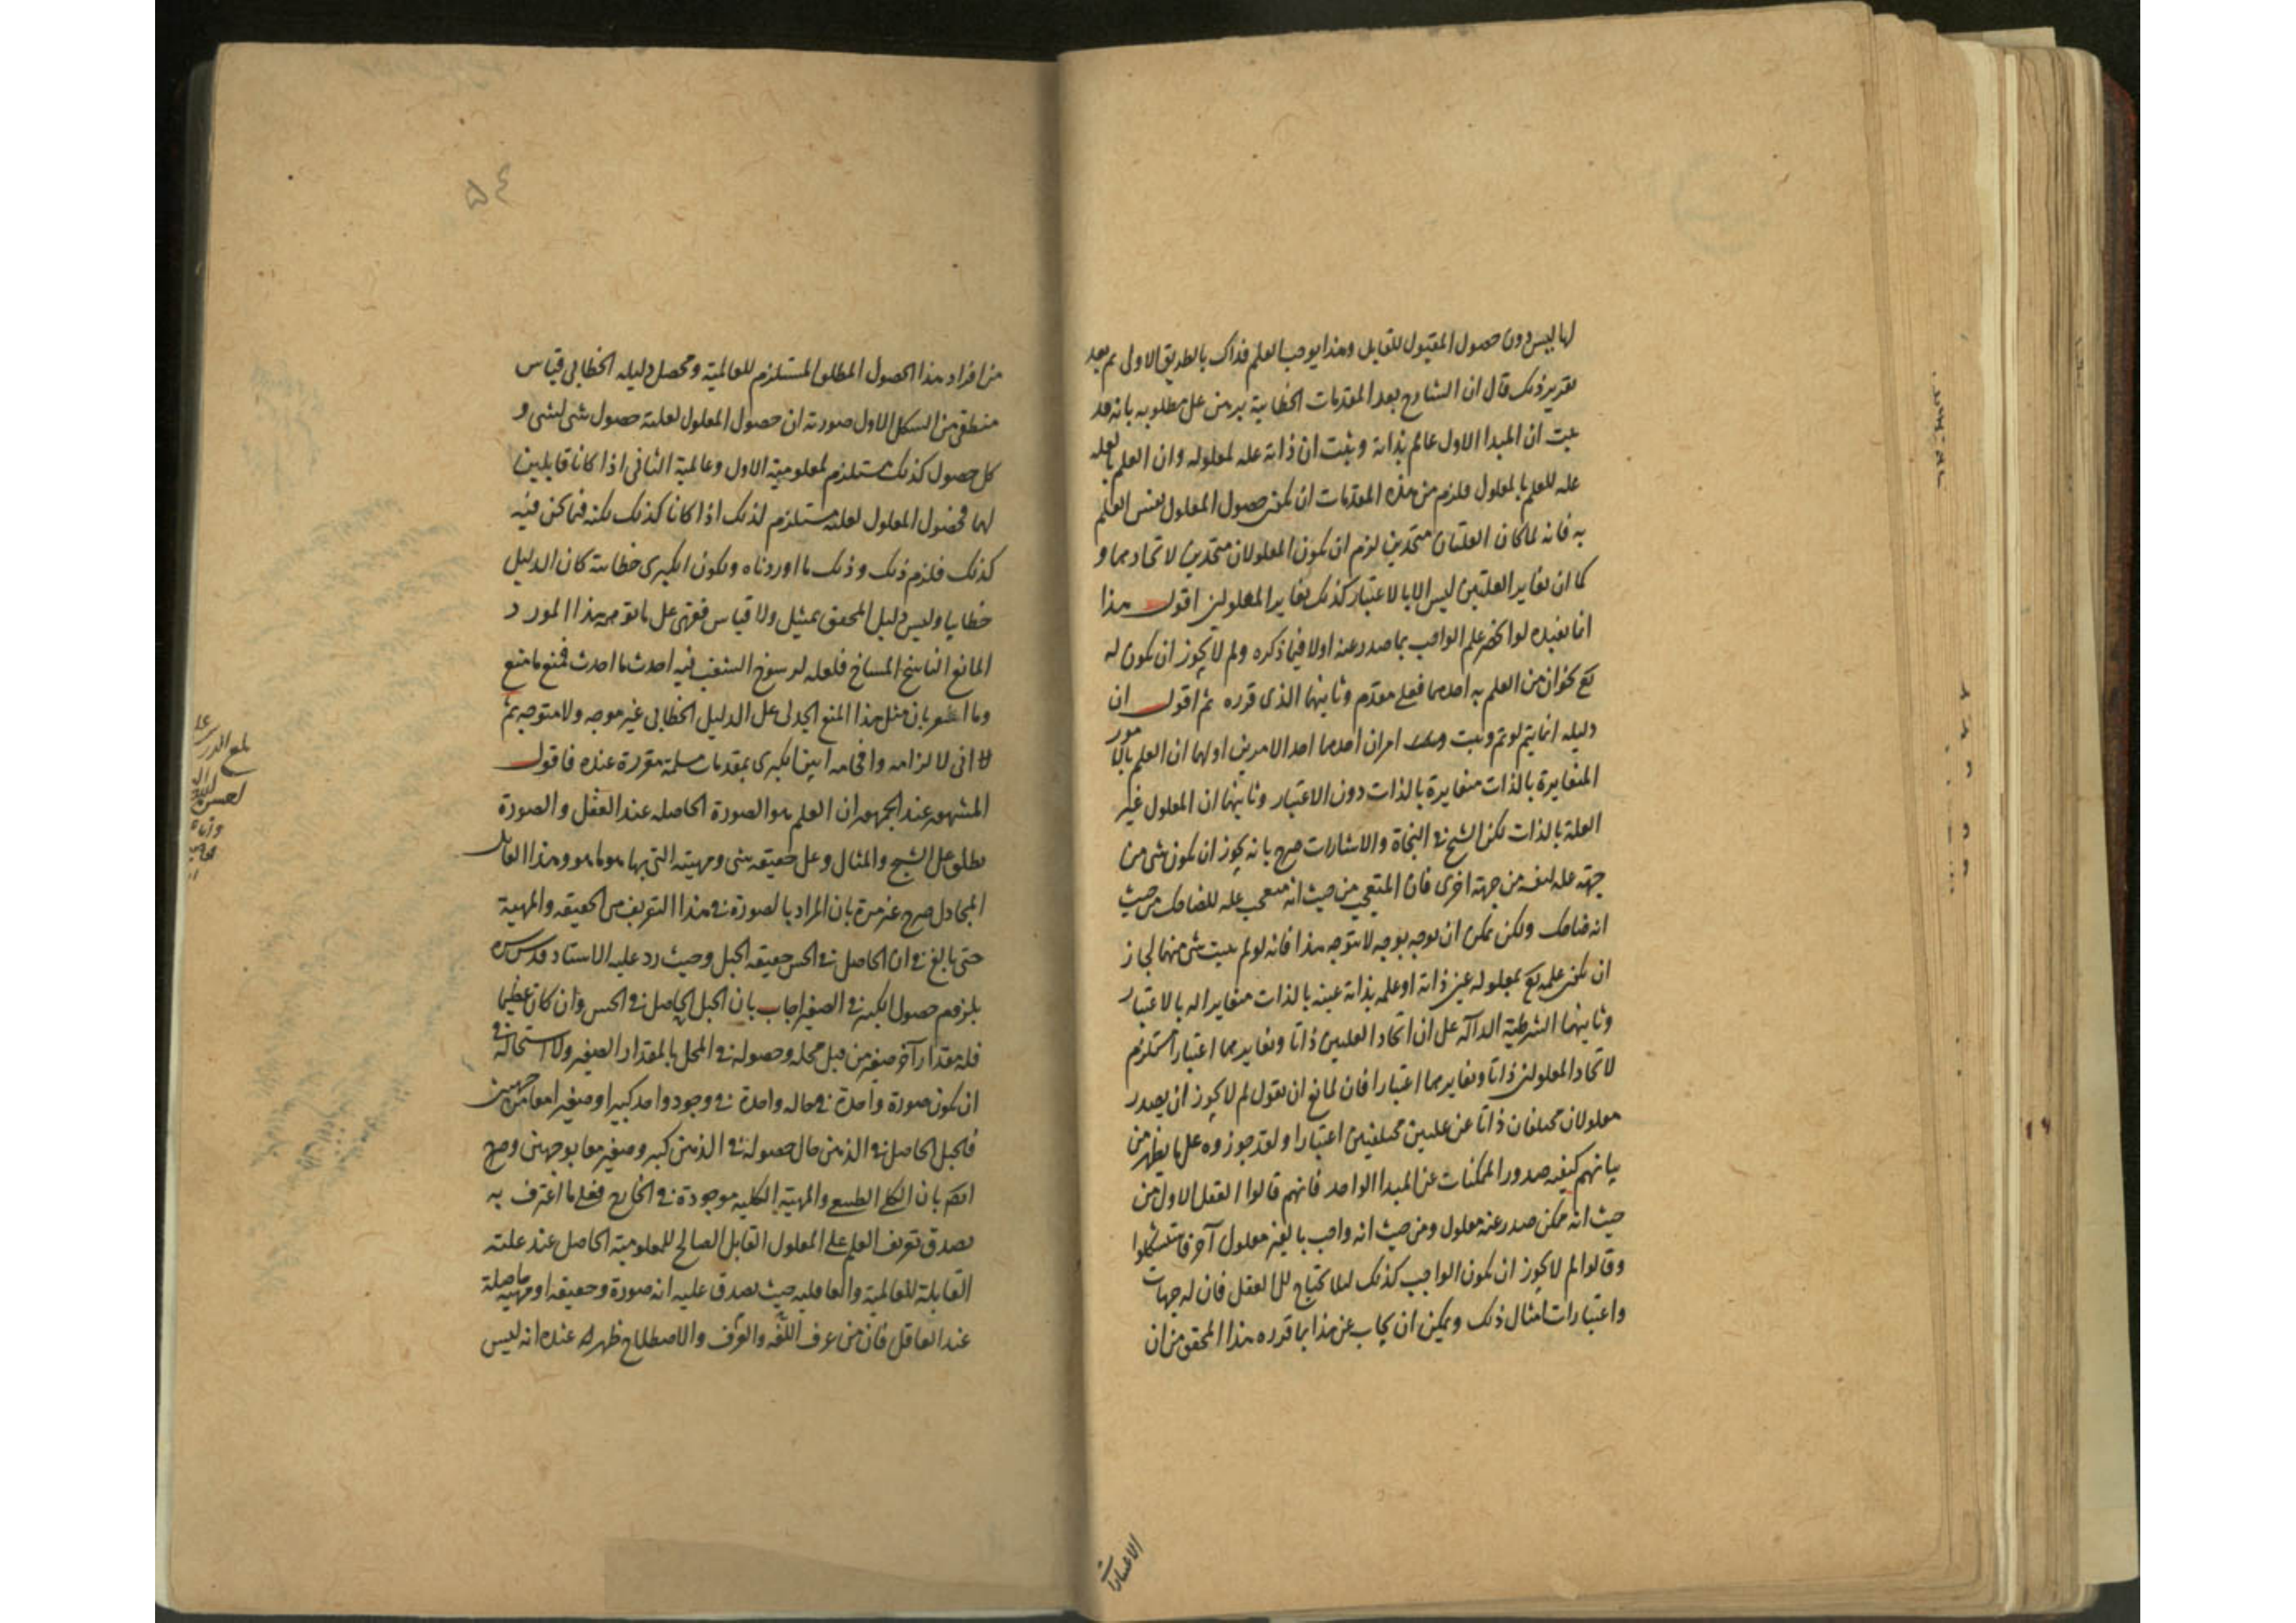 لها ليس دون حصول المقبول للقابل وهذا يوجب العلم فذاك بالطريق الاولى ثم بعد
تقرير ذلك قال ان الشارح بعد المقدمات الخطابية برهن على مطلوبه بانه قد
ثبت ان المبدا الاول عالم بذاته وثبت ان ذاته علة لمعلوله وان العلم بالعلة
علة للعلم بالمعلول فلزم من هذه المقدمات ان يكون حصول المعلول نفس العلم
به فانه لما كان العلتان متحدين لزم ان يكون المعلولان متحدين لاتحادهما و
كما ان تغاير العلتين ليس الا بالاعتبار كذلك تغاير المعلولين اقول هذا
انما يفيده لو انحصر علم الواجب بما صدر عنه اولا فيما ذكره ولم لا يجوز ان يكون له
تع نحوان من العلم به احدهما فعلي مقدم وثانيهما الذى قرره ثم اقول ان
دليله انما يتم لو تم وثبت امران احدهما احد الامرين اولهما ان العلم بالامور
المتغايرة بالذات متغايرة بالذات دون الاعتبار وثانيهما ان المعلول غير
العلة بالذات لكن الشيخ في النجاة والاشارات صرح بانه يجوز ان يكون شى من
جهة علة لنفسه من جهة اخرى فان المتعجب من حيث انه متعجب علة للضاحك من حيث
انه ضاحك ولكن يمكن ان يوجه بوجه لا يتوجه هذا فانه لو لم يثبت شى منهما لجاز
ان يكون علمه تع بمعلوله عين ذاته او علمه بذاته عينه بالذات متغايرا له بالاعتبار
وثانيهما الشرطية الدالة على ان اتحاد العلتين ذاتا وتغايرهما اعتبارا مستلزم
لاتحاد المعلولين ذاتا وتغايرهما اعتبارا فان لمانع ان يقول لم لا يجوز ان يصدر
معلولان مختلفان ذاتا عن علتين مختلفتين اعتبارا ولقد جوزوه على ما يظهر من
بيانهم كيفية صدور الممكنات عن المبدا الواحد فانهم قالوا العقل الاول من
حيث انه ممكن صدر عنه معلول ومن حيث انه واجب بالغير معلول آخر فاستشكلوا
وقالوا لم لا يجوز ان يكون الواجب كذلك لئلا يحتاج الى العقل فان له جهات
واعتبارات امثال ذلك ويمكن ان يجاب عن هذا بما قرره هذا المحقق من ان
الاعتبارات
٥٤
من افراد هذا الحصول المطلق المستلزم للعالمية ومحصل دليله الخطابى قياس
منطقى من الشكل الاول صورته ان حصول المعلول لعلته حصول شى لشى و
كل حصول كذلك مستلزم لمعلومية الاول وعالمية الثانى اذا كانا قابلين
لهما فحصول المعلول لعلته مستلزم لذلك اذا كانا كذلك لكنه فيما نحن فيه
كذلك فلزم ذلك وذلك ما اوردناه ولكون الكبرى خطابية كان الدليل
خطابيا وليس دليل المحقق بتمثيل ولا قياس فقهى على ما توهمه هذا المورد
المانع الناسخ المساخ فلعله لرسوخ الشغب فيه احدث ما احدث فمنع ما منع
وما اشعر بان مثل هذا المنع الجدلى على الدليل الخطابى غير موجه ولا متوجه ثم
انى لالزامه وافحامه ابين الكبرى بمقدمات مسلمة مقررة عنده فاقول
المشهور عند الجمهور ان العلم هو الصورة الحاصلة عند العقل والصورة
تطلق على الشبح والمثال وعلى حقيقة شى ومهيته التى بها هو ما هو وهذا القائل
المجادل صرح غير مرة بان المراد بالصورة في هذا التعريف هى الحقيقة والمهية
حتى بالغ في ان الحاصل في الحس حقيقة الجبل وحيث رد عليه الاستاد قدس سره
بلزوم حصول الكبير في الصغير اجاب بان الجبل الحاصل في الحس وان كان عظيما
فله مقدار آخر صغير من قبل محله وحصوله في المحل بالمقدار الصغير ولا استحالة في
ان يكون صورة واحدة في حالة واحدة في وجود واحد كبيرا وصغيرا معا من جهتين
فالجبل الحاصل في الذهن حال حصوله في الذهن كبير وصغير معا بوجهين وصرح
ايضا بان الكلى الطبيعى والمهية الكلية موجودة في الخارج فعلى ما اعترف به
يصدق تعريف العلم على المعلول القابل الصالح للمعلومية الحاصل عند علته
القابلة للعالمية والعاقلية حيث يصدق عليه انه صورة وحقيقة او مهية حاصلة
عند العاقل فان من عرف اللغة والعرف والاصطلاح ظهر له عنده انه ليس